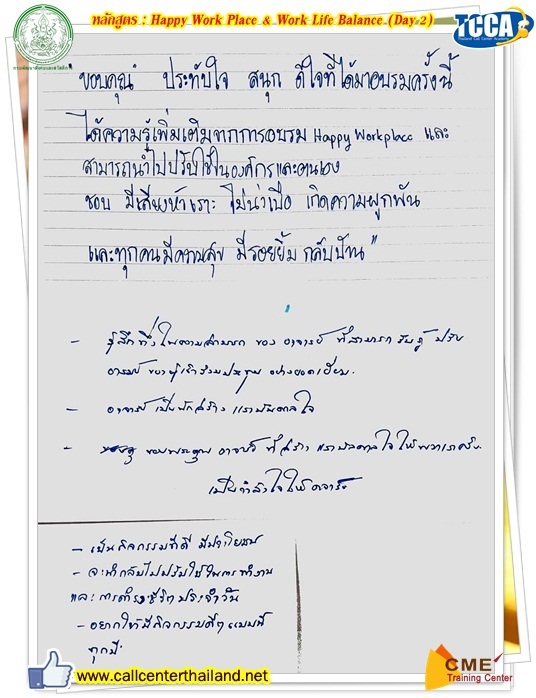 หลักสูตร : Happy Work Place & Work Life Balance.(Day 2)
TCCA
Thailand Call Center Academy
"ขอบคุณ ประทับใจ สนุก ดีใจที่ได้มาอบรมครั้งนี้
ได้ความรู้เพิ่มเติมจากการอบรม Happy Workplace และ
สามารถนำไปปรับใช้ในองค์กรและตนเอง
ชอบ มีเสียงหัวเราะ ไม่น่าเบื่อ เกิดความผูกพัน
และทุกคนมีความสุข มีรอยยิ้ม กลับบ้าน"
- รู้สึกทึ่งในความสามารถ ของ อาจารย์ ที่สามารถ รับรู้ ปรับ
อารมณ์ ของผู้เข้าร่วมประชุม อย่างยอดเยี่ยม.
- อาจารย์ เป็นนักสร้าง แรงบันดาลใจ
- ขอบพระคุณ อาจารย์ ที่สร้าง แรงบันดาลใจ ให้พวกเราครับ
เป็นกำลังใจให้อาจารย์
- เป็นกิจกรรมที่ดี มีประโยชน์
- จะนำกลับไปปรับใช้ในการทำงาน
และการดำรงชีวิตประจำวัน
- อยากให้มีกิจกรรมดีๆ แบบนี้
ทุกปี
www.callcenterthailand.net
CME
Training Center